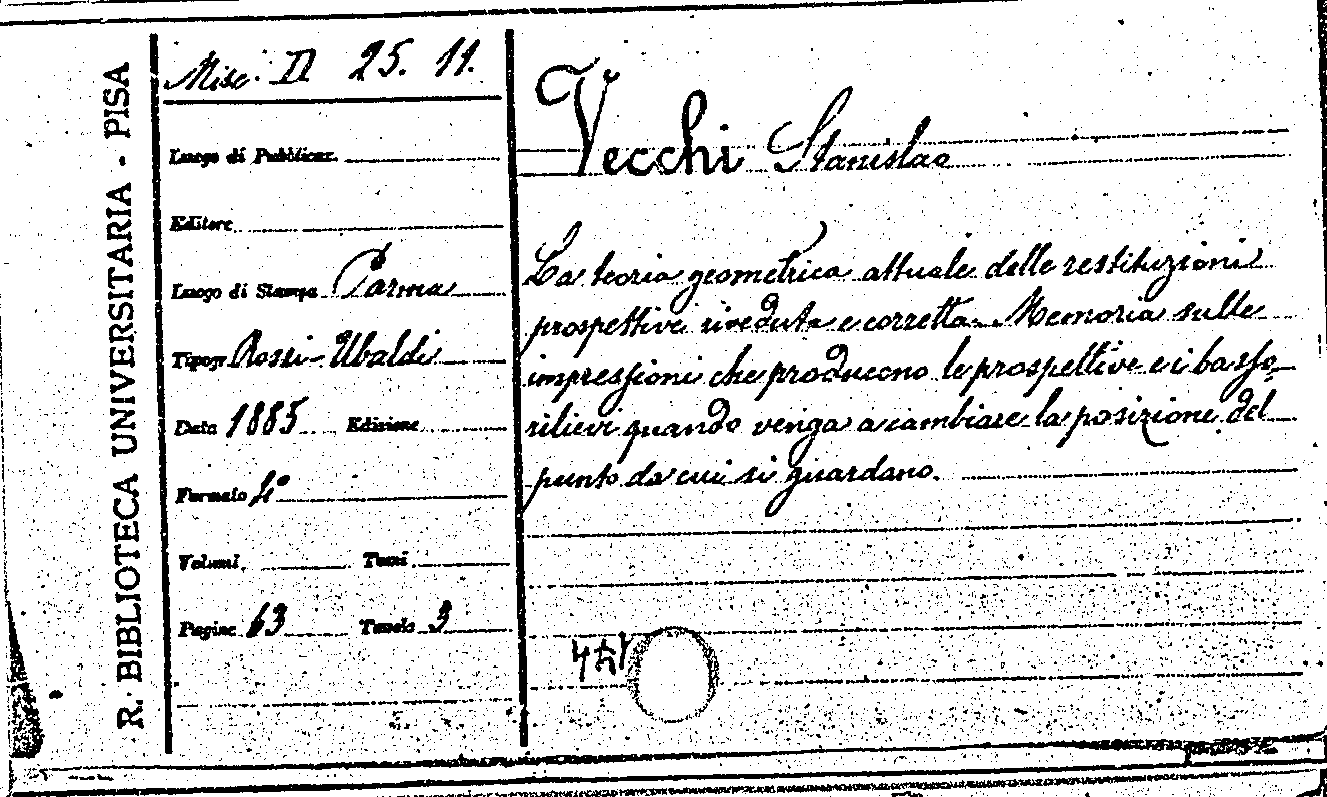 R. BIBLIOTECA UNIVERSITARIA - PISA
Misc. D 25. 11.
Luogo di Pubblicaz.
Editore
Luogo di Stampa Parma
Tipogr. Rossi-Ubaldi
Data 1885 Edizione
Formato 4°
Volumi Tomi
Pagine 63 Tavole 3
Vecchi Stanislao
La teoria geometrica attuale delle restituzioni
prospettive riveduta e corretta. Memoria sulle
impressioni che producono le prospettive e i basso-
rilievi quando venga a cambiare la posizione del
punto da cui si guardano.